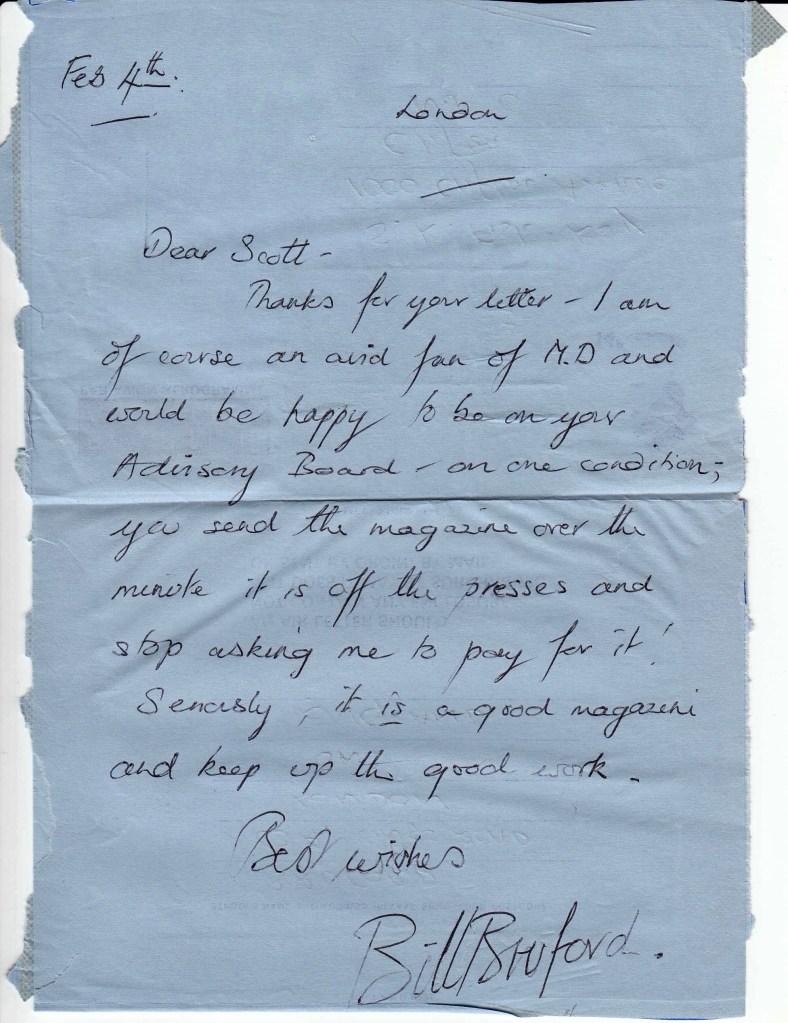 Feb 4th.
London
Dear Scott -
Thanks for your letter - I am
of course an avid fan of M.D and
would be happy to be on your
Advisory Board - on one condition;
you send the magazine over the
minute it is off the presses and
stop asking me to pay for it!
Seriously, it is a good magazine
and keep up the good work.
Best wishes
Bill Bruford.